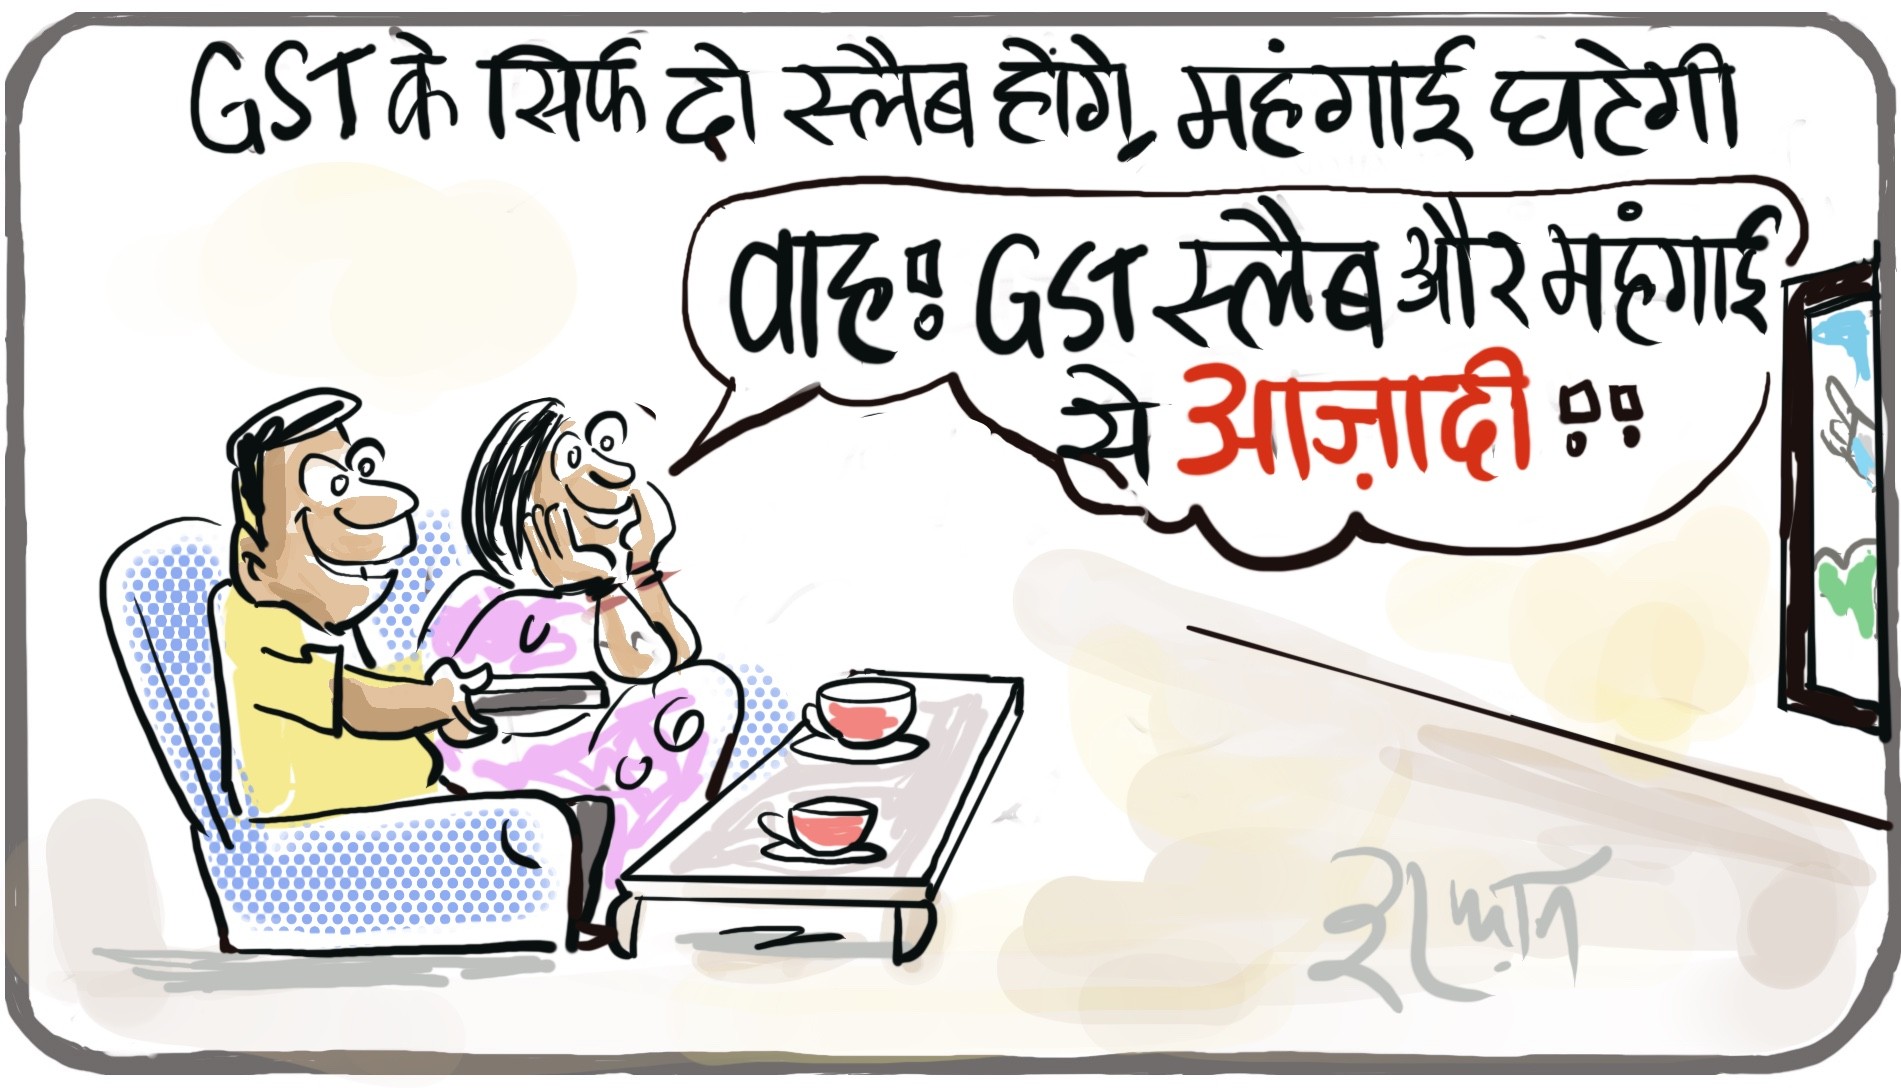 GST के सिर्फ दो स्लैब होंगे, महंगाई घटेगी
वाह! GST स्लैब और महंगाई
से आज़ादी !!
इरफ़ान